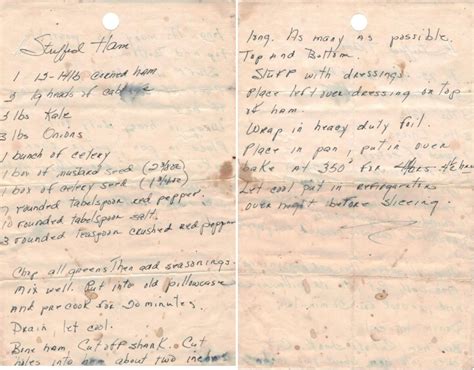 Stuffed Ham
1 12-14lb corned ham
3 lg heads of cabbage
3 lbs Kale
3 lbs Onions
1 bunch of celery
1 box of mustard seed
1 box of celery seed
7 rounded tabelspoon red pepper
10 rounded tabelspoon salt.
3 rounded teaspoon crushed red pepper
Chop all greens Then add seasonings.
mix well. Put into old pillowcase
and precook for 20 minutes.
Drain, let cool.
Bone ham, Cut off shank. Cut
holes into ham about two inches
long. As many as possible.
Top and Bottom.
Stuff with dressings.
Place left over dressing on top
of ham.
Wrap in heavy duty foil.
Place in pan, put in oven
bake at 350° for
Let cool put in Refrigeration
over night before sliceing.